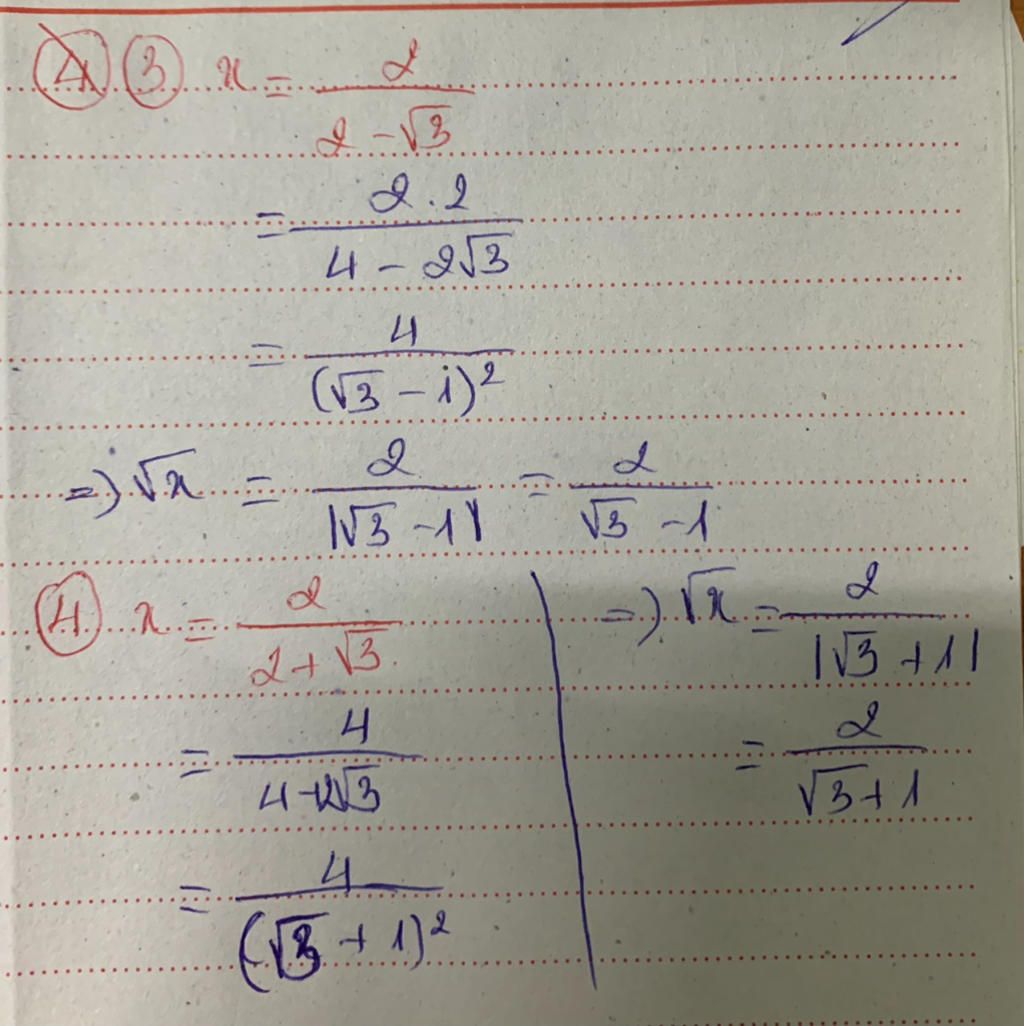 ④ ③ x = 2/(2 - √3)
= (2 . 2)/(4 - 2√3)
= 4/(√3 - 1)²
=> √x = 2/|√3 - 1| = 2/(√3 - 1)
④ x = 2/(2 + √3)
= 4/(4 + 2√3)
= 4/(√3 + 1)²
=> √x = 2/|√3 + 1|
= 2/(√3 + 1)